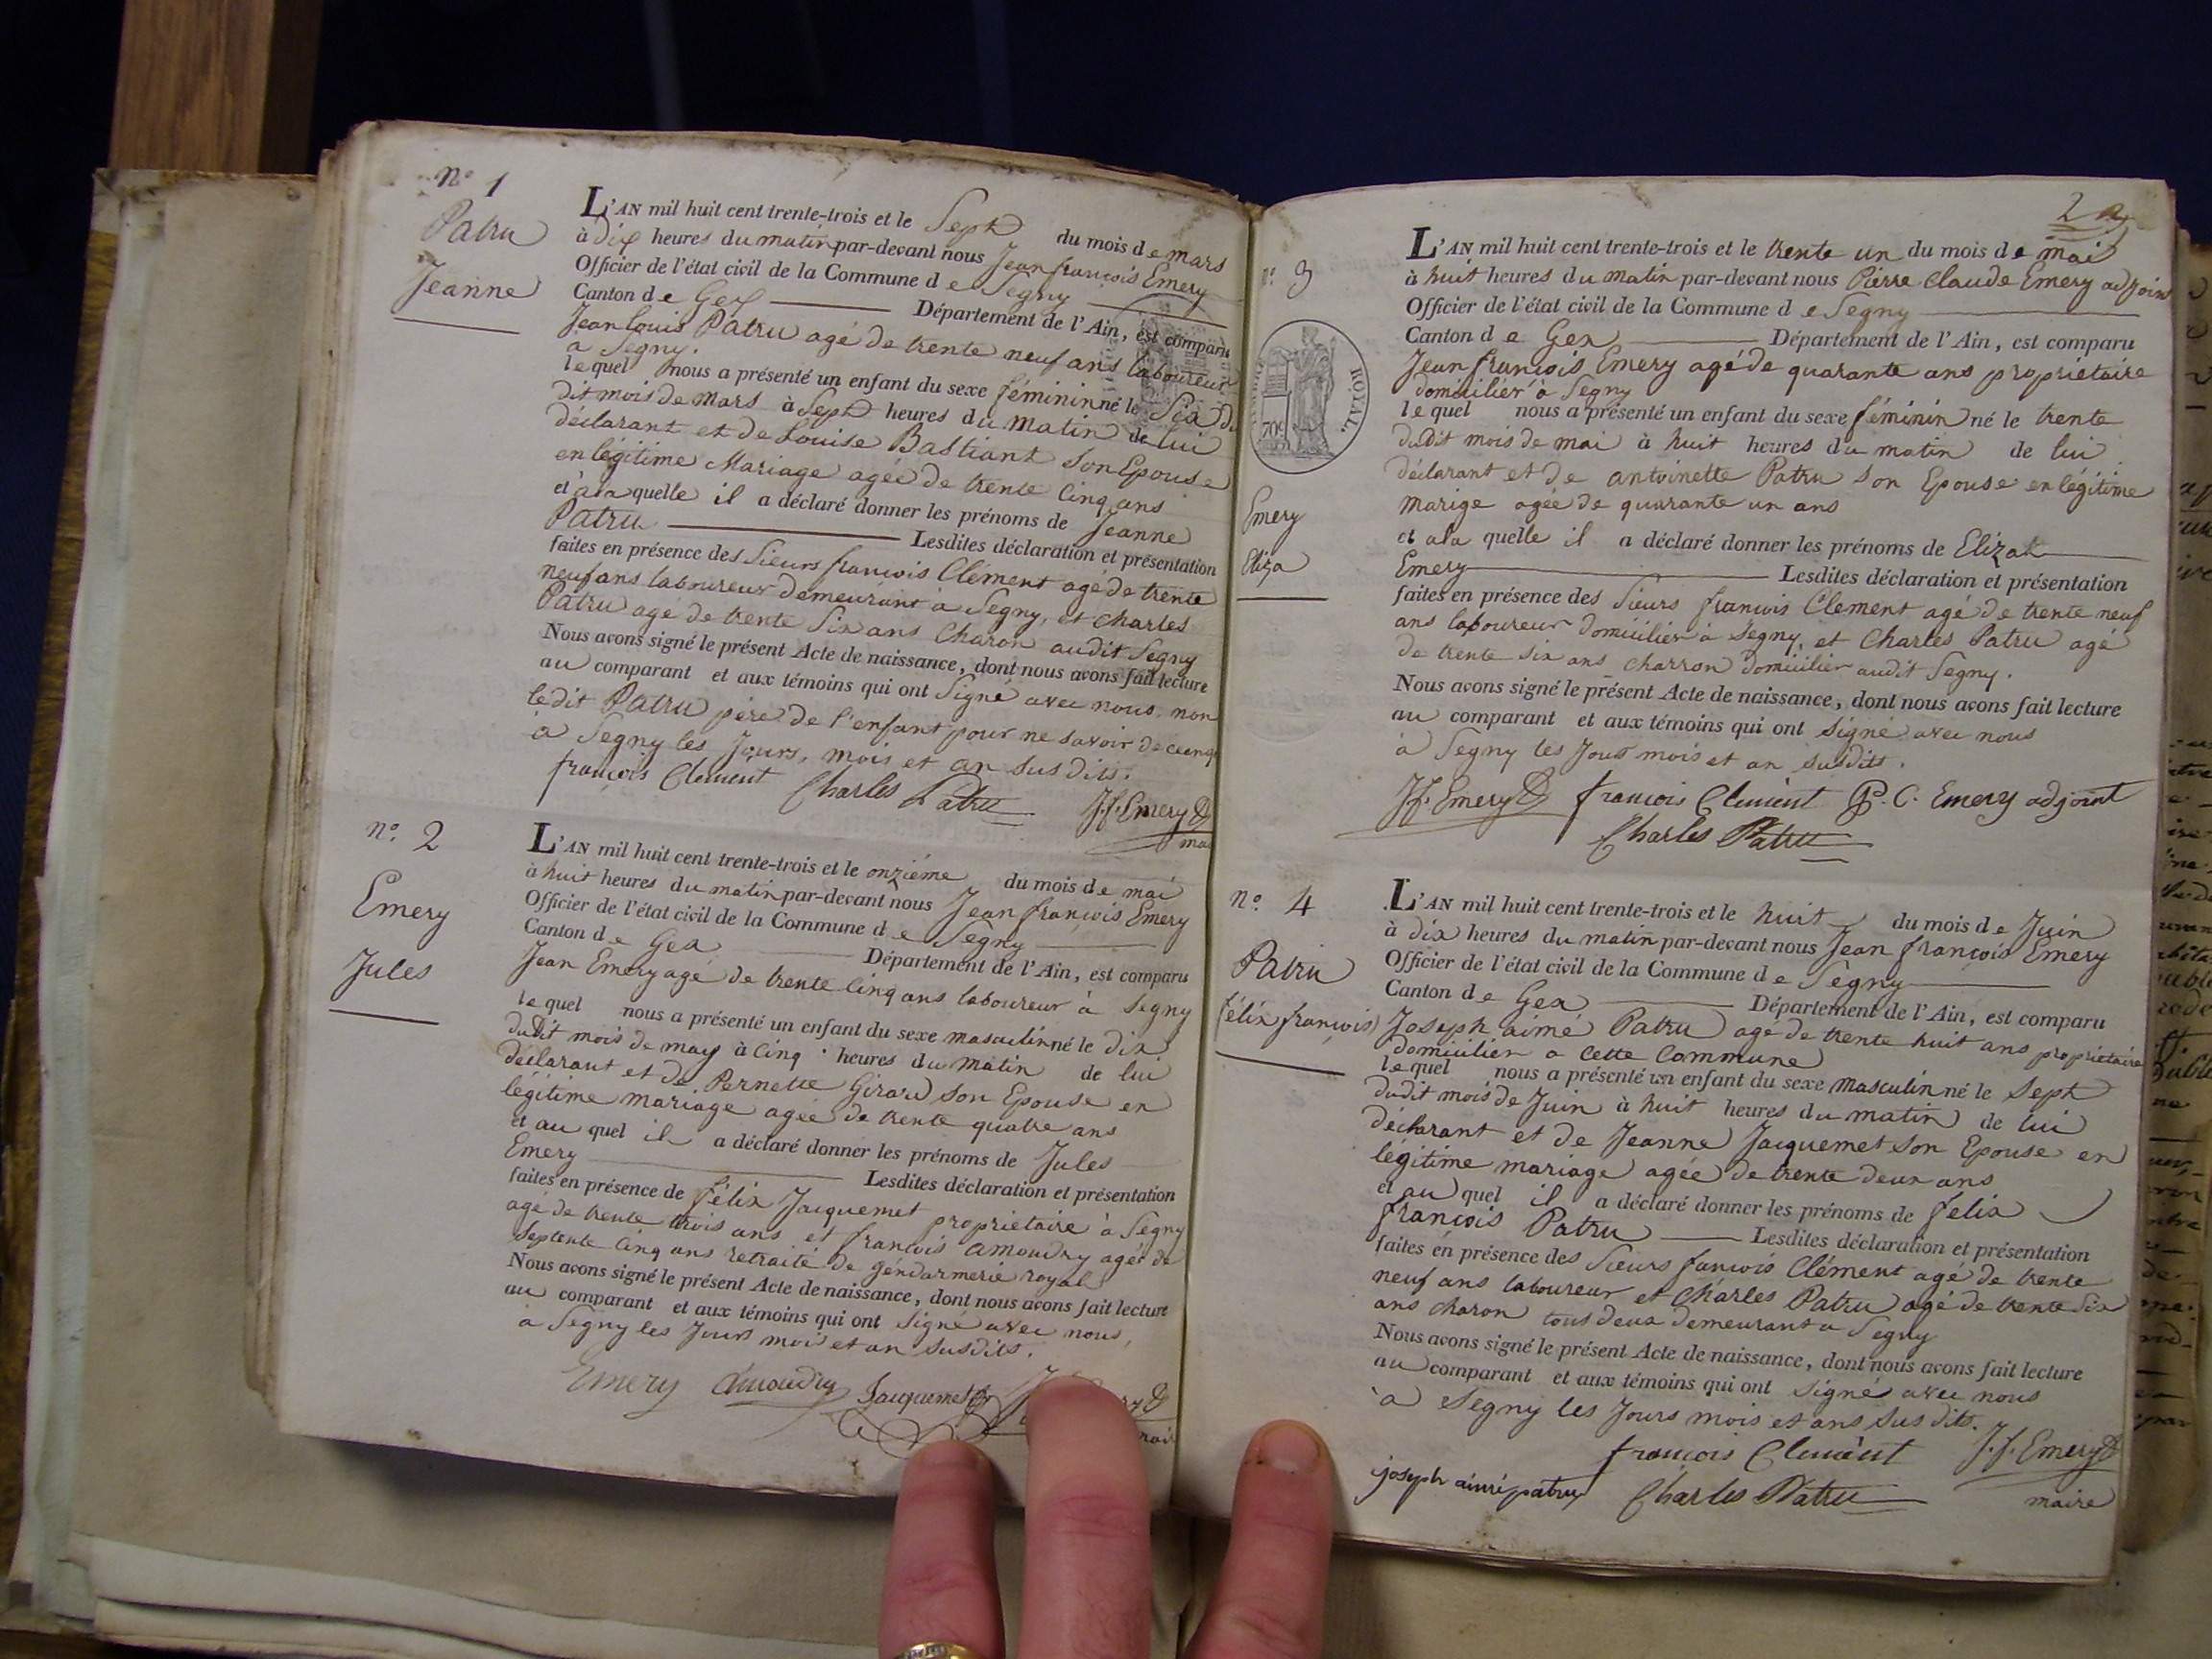 n° 1
Patru
Jeanne
L'AN mil huit cent trente-trois et le Sept du mois de mars
à dix heures du matin par-devant nous Jean françois Emery
Officier de l'état civil de la Commune de Segny
Canton de Gex Département de l'Ain, est comparu
Jean Louis Patru agé de trente neuf ans laboureur
a Segny.
lequel nous a présenté un enfant du sexe féminin né le Six du
dit mois de mars à Sept heures du matin de lui
déclarant et de Louise Bastiant Son Epouse
en légitime Mariage agée de trente Cinq ans
et à la quelle il a déclaré donner les prénoms de Jeanne
Patru Lesdites déclaration et présentation
faites en présence des Sieurs françois Clément agé de trente
neuf ans laboureur demeurant à Segny, et Charles
Patru agé de trente Six ans Charon audit Segny
Nous avons signé le présent Acte de naissance, dont nous avons fait lecture
au comparant et aux témoins qui ont Signé avec nous, non
ledit Patru père de l'enfant pour ne savoir de ce enqs
à Segny les Jours, mois et an susdits.
françois Clement Charles Patru J.f. Emery
n° 2
Emery
Jules
L'AN mil huit cent trente-trois et le onziéme du mois de mai
à huit heures du matin par-devant nous Jean françois Emery
Officier de l'état civil de la Commune de Segny
Canton de Gex Département de l'Ain, est comparu
Jean Emery agé de trente Cinq ans laboureur à Segny
lequel nous a présenté un enfant du sexe masculin né le dix
dudit mois de may à Cinq heures du matin de lui
déclarant et de Pernette Girard Son Epouse en
légitime mariage agée de trente quatre ans
et au quel il a déclaré donner les prénoms de Jules
Emery Lesdites déclaration et présentation
faites en présence de félix Jacquemet propriétaire à Segny
agé de trente trois ans et françois amoudry agés de
Septente Cinq ans retraité de géndarmerie royal
Nous avons signé le présent Acte de naissance, dont nous avons fait lecture
au comparant et aux témoins qui ont Signé avec nous,
a Segny les Jours mois et an susdits.
Emery amoudry Jacquemet
2
n° 3
ROYAL.
Emery
Eliza
L'AN mil huit cent trente-trois et le trente un du mois de mai
à huit heures du matin par-devant nous Pierre Claude Emery adjoint
Officier de l'état civil de la Commune de Segny
Canton de Gex Département de l'Ain, est comparu
Jean françois Emery agé de quarante ans propriétaire
domicilier à Segny
lequel nous a présenté un enfant du sexe féminin né le trente
dudit mois de mai à huit heures du matin de lui
déclarant et de antoinette Patru Son Epouse en légitime
marige agée de quarante un ans
et ala quelle il a déclaré donner les prénoms de Elizat
Emery Lesdites déclaration et présentation
faites en présence des Sieurs françois Clement agé de trente neuf
ans laboureur domicilier à Segny, et Charles Patru agé
de trente six ans charron domicilier audit Segny.
Nous avons signé le présent Acte de naissance, dont nous avons fait lecture
au comparant et aux témoins qui ont signé avec nous
à Segny les Jour mois et an susdits.
Jf. Emery françois Clement P. C. Emery adjoint
Charles Patru
n° 4
Patru
félix françois
L'AN mil huit cent trente-trois et le huit du mois de Juin
à dix heures du matin par-devant nous Jean françois Emery
Officier de l'état civil de la Commune de Segny
Canton de Gex Département de l'Ain, est comparu
Joseph aimé Patru agé de trente huit ans propriétaire
domicilier a cette Commune
lequel nous a présenté un enfant du sexe masculin né le Sept
dudit mois de Juin à huit heures du matin de lui
déclarant et de Jeanne Jacquemet Son Epouse en
légitime mariage agée de trente deux ans
et au quel il a déclaré donner les prénoms de felix
françois Patru Lesdites déclaration et présentation
faites en présence des Sieurs fançois Clément agé de trente
neuf ans laboureur et Charles Patru agé de trente six
ans charon tous deux demeurant a Segny
Nous avons signé le présent Acte de naissance, dont nous avons fait lecture
au comparant et aux témoins qui ont signé avec nous
à Segny les Jours mois et ans susdits.
françois Clement J.f. Emery
joseph aimé patru Charles Patru maire